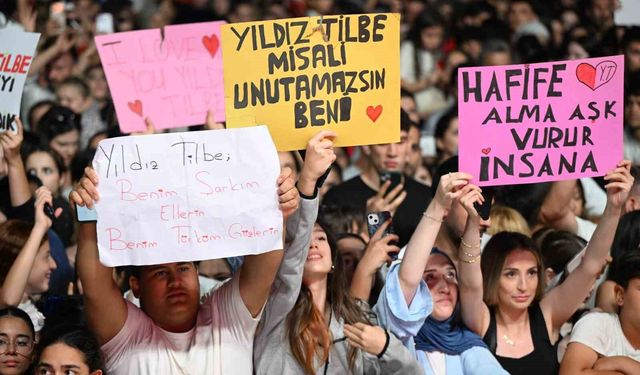 I LOVE
YOU YILDIZ
TILBE
YILDIZ TİLBE
MİSALİ
UNUTAMAZSIN
BENİ
HAFİFE
YT
ALMA AŞK
VURUR
İNSANA
Yıldız Tilbe;
Benim Şarkım
Ellerin
Benim Türküm Gözlerin